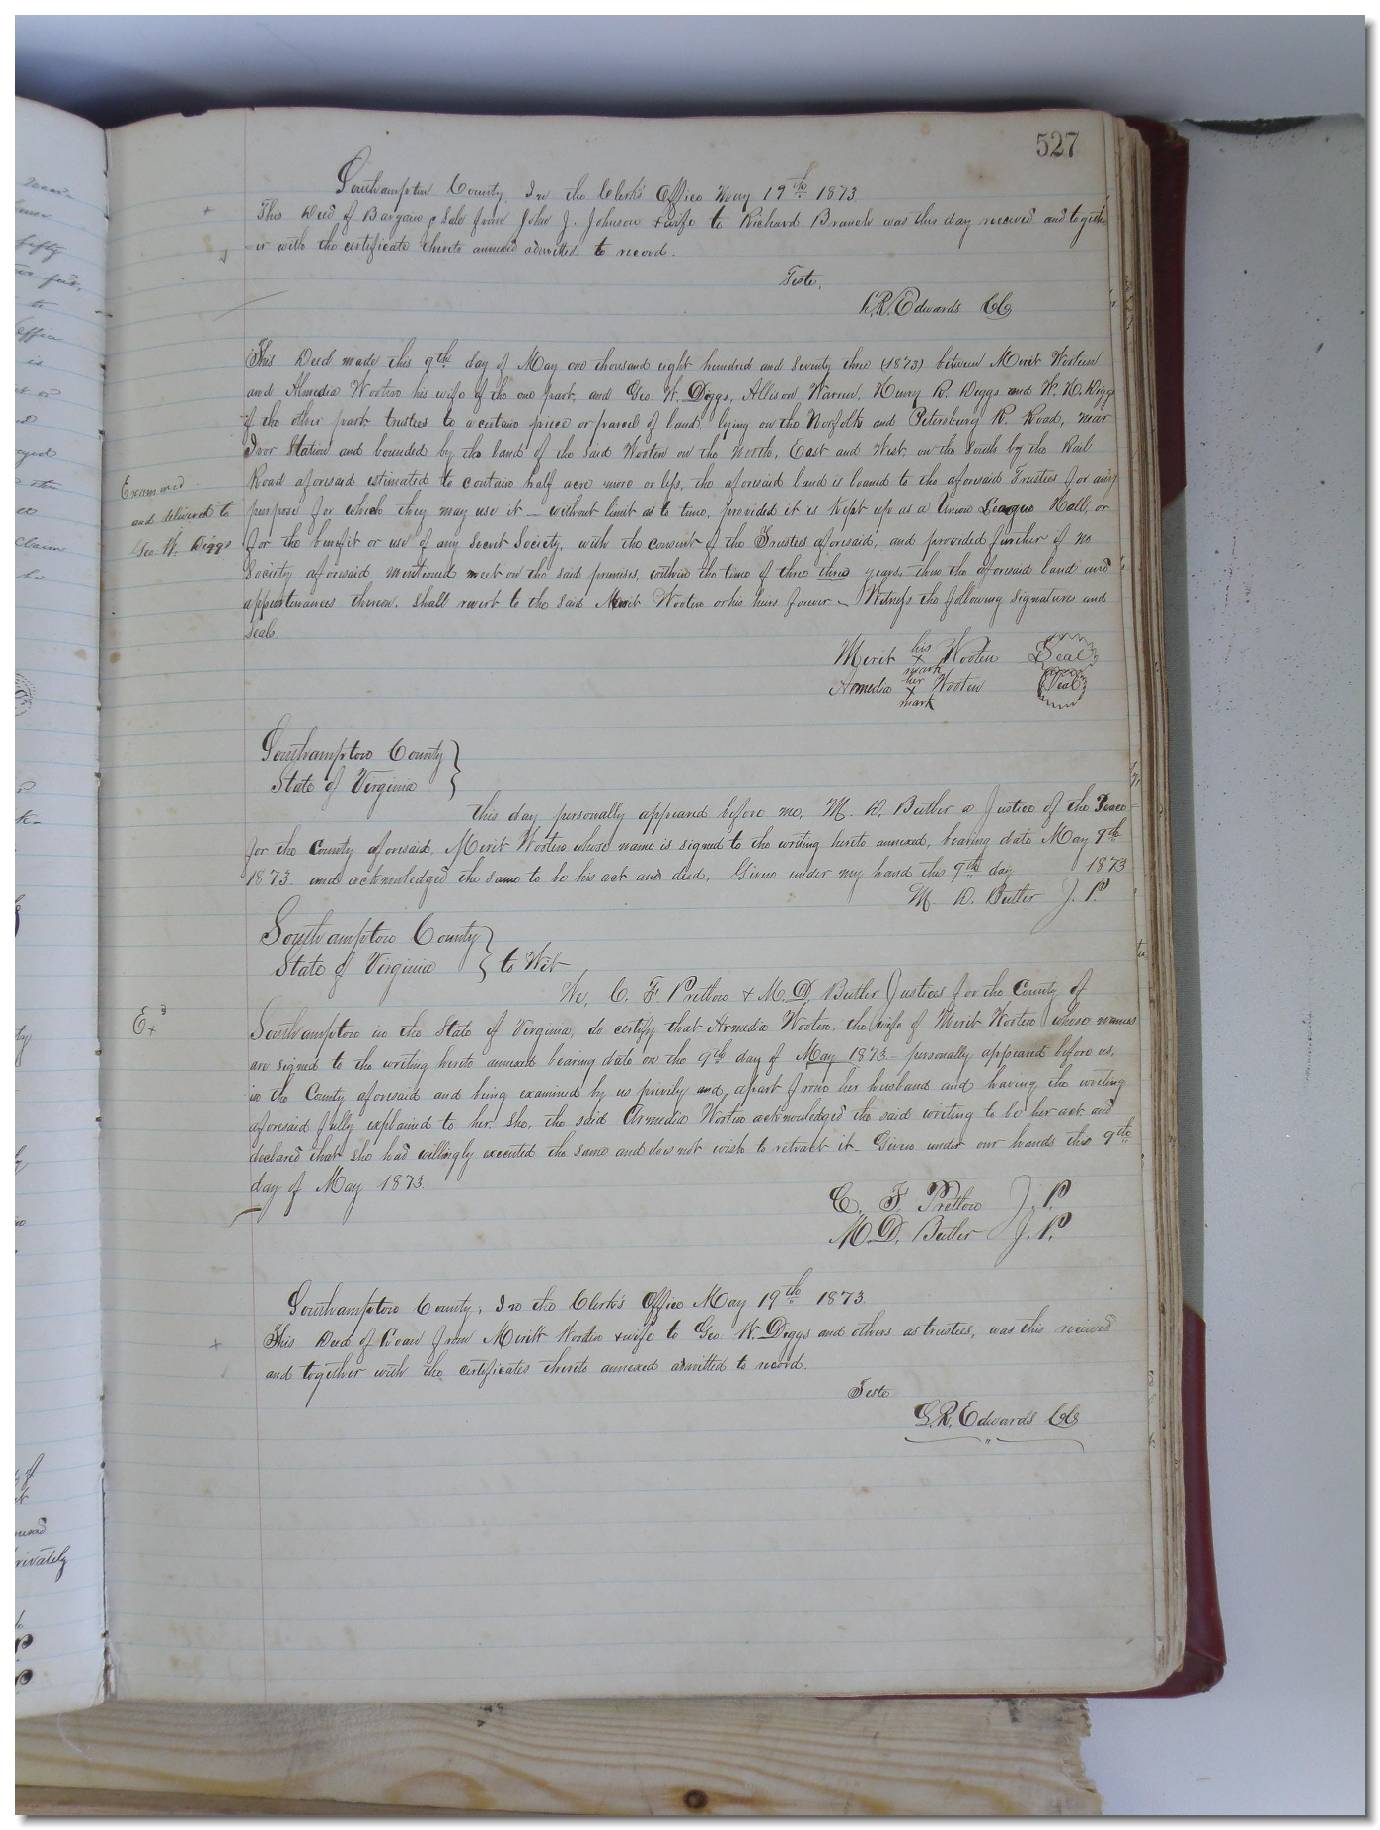 527
Southampton County, In the Clerk's Office May 19th 1873.
This Deed of Bargain & Sale from John J. Johnson & wife to Richard Branch was this day received and togeth
er with the certificate thereto annexed admitted to record.
Teste,
L. R. Edwards CC
This Deed made this 9th day of May one thousand eight hundred and seventy three (1873) between Merit Wooten
and Almedia Wooten his wife of the one part, and Geo W. Diggs, Allison Warren, Henry R. Diggs and W. H. Diggs
of the other part trustees to a certain piece or parcel of land lying on the Norfolk and Petersburg R. Road, near
Ivor Station and bounded by the land of the said Wooten on the North, East and West, on the South by the Rail
Road aforesaid estimated to contain half acre more or less, the aforesaid land is loaned to the aforesaid Trustees for any
purpose for which they may use it — without limit as to time, provided it is Kept up as a Union League Hall, or
for the benefit or use of any Secret Society, with the consent of the Trustees aforesaid, and provided further if no
Society aforesaid mentioned meet on the said premises, within the time of three three years, then the aforesaid land and
appurtenances thereon, shall revert to the said Merit Wooten or his heirs forever – Witness the following signatures and
seals.
Examined
and delivered to
Geo. W. Diggs
Merit his x mark Wooten Seal
Armedia her x mark Wooten Seal
Southampton County
State of Virginia
this day personally appeared before me, M. D. Butler a Justice of the Peace
for the County aforesaid, Merit Wooten whose name is signed to the writing hereto annexed, bearing date May 9th
1873 and acknowledged the same to be his act and deed. Given under my hand this 9th day 1873
M. D. Butler J. P.
Southampton County
State of Virginia to Wit
We, C. F. Pretlow & M. D. Butler Justices for the County of
Ex
Southampton in the State of Virginia, do certify that Armedia Wooten, the wife of Merit Wooten whose names
are signed to the writing hereto annexed bearing date on the 9th day of May 1873 – personally appeared before us,
in the County aforesaid and being examined by us privily and, apart from her husband and having the writing
aforesaid fully explained to her, she, the said Armedia Wooten acknowledged the said writing to be her act and
declared that she had willingly executed the same and does not wish to retract it – Given under our hands this 9th
day of May 1873.
C. F. Pretlow J. P.
M. D. Butler J. P.
Southampton County, In the Clerk's Office May 19th 1873.
This Deed of Loan from Meritt Wooten & wife to Geo W. Diggs and others as trustees, was this received
and together with the certificates thereto annexed admitted to record.
Teste
L. R. Edwards CC